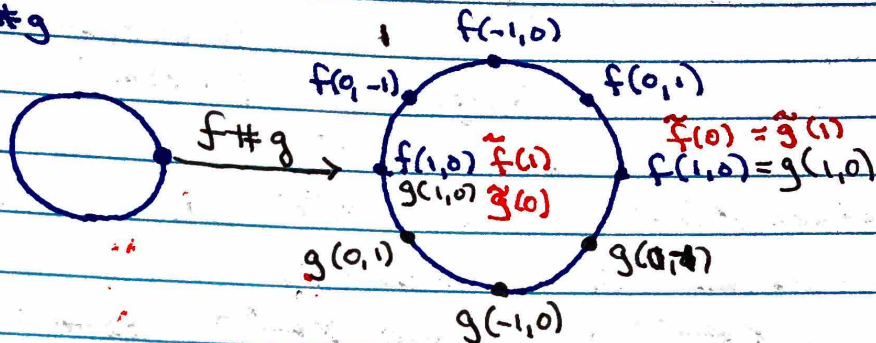 # g
f(-1,0)
f(0,-1)
f(0,1)
f # g
f(1,0) f̃(1)
g(1,0) g̃(0)
f̃(0) = g̃(1)
f(1,0) = g(1,0)
g(0,1)
g(-1,0)